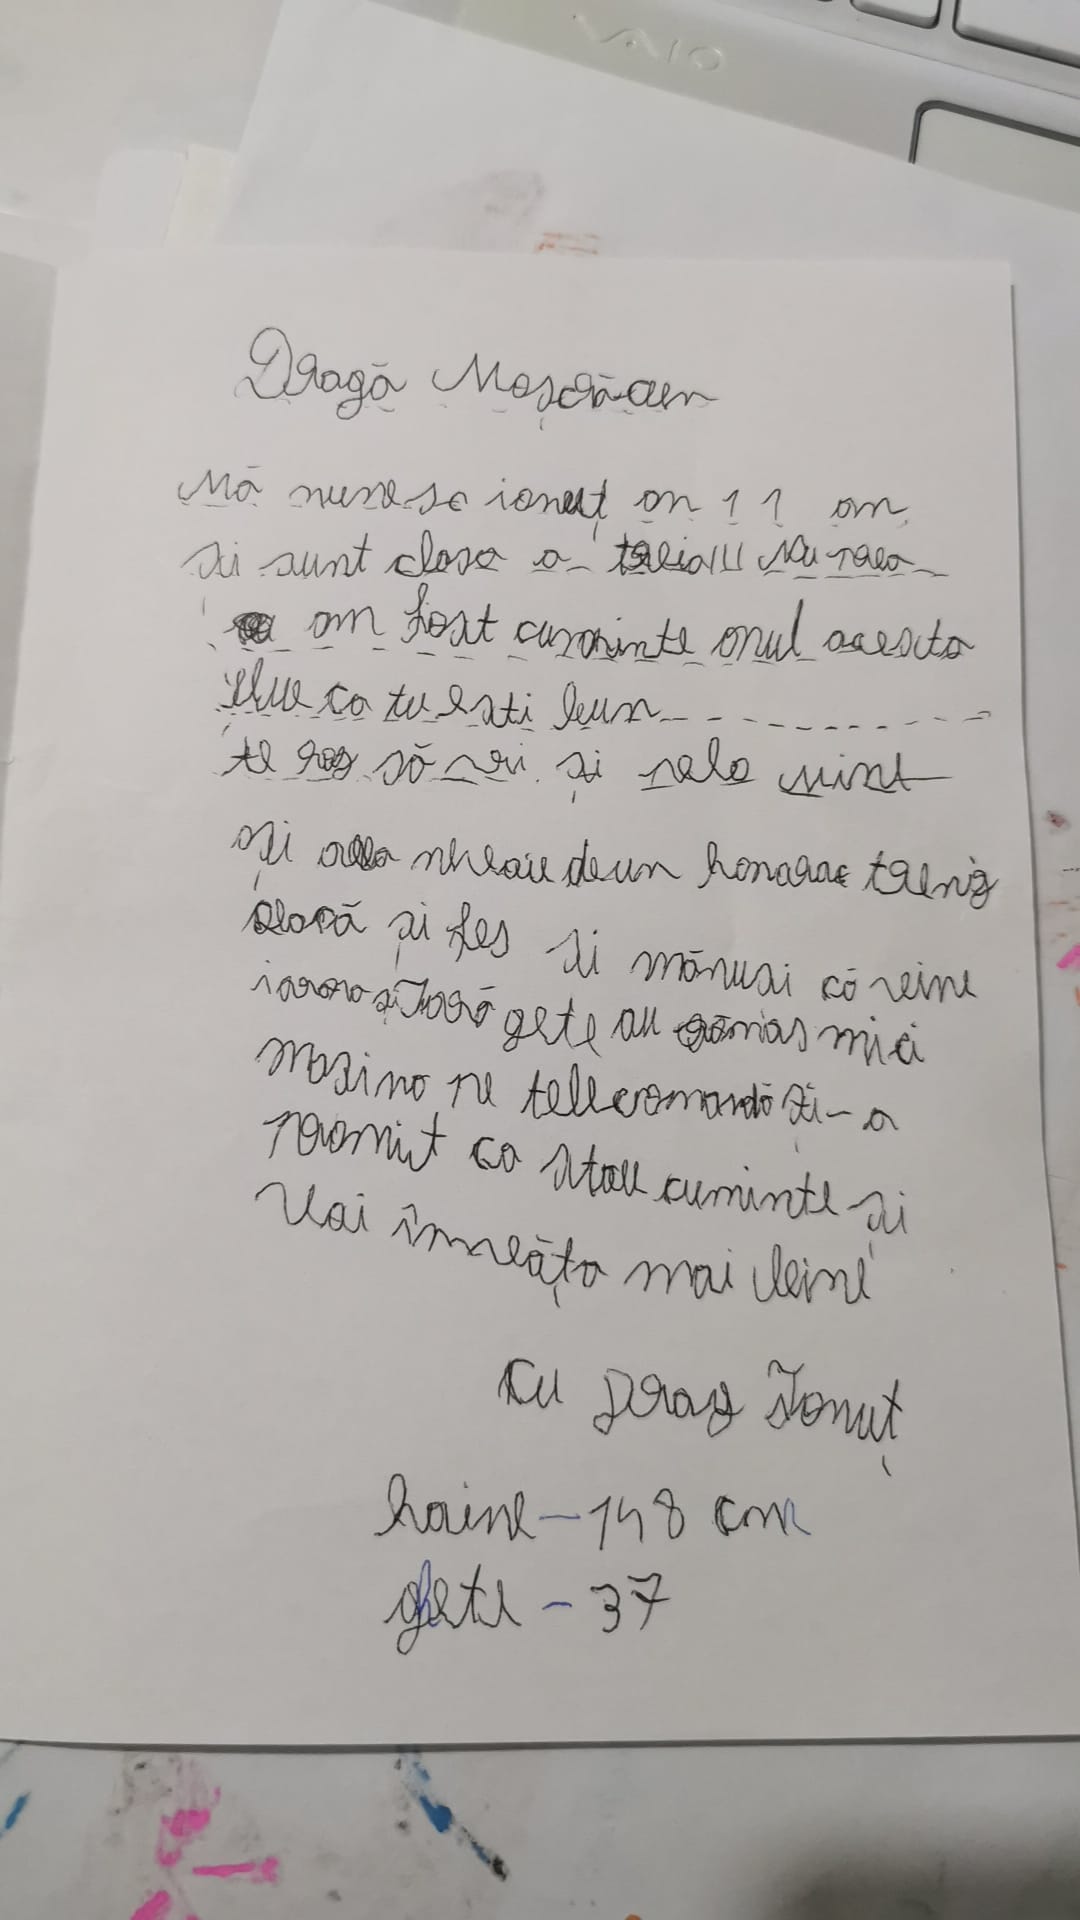 VAIO
Dragă Moșcrăcun
Mă numesc ionuț am 11 an
și sunt clasa a treia III Nu prea
am fost cuminte anul acesta
știu ca tu ești bun
te rog să vii și pela mint
și avea nevoie de un hanorac trening
geacă și fes și mănuși că vine
iarna și Jară gete au rămas mici
mașina pe telecomandă și-a
promit ca stau cuminte și
Voi învăța mai bine
Cu Drag Ionuț
haine - 148 cm
gete - 37